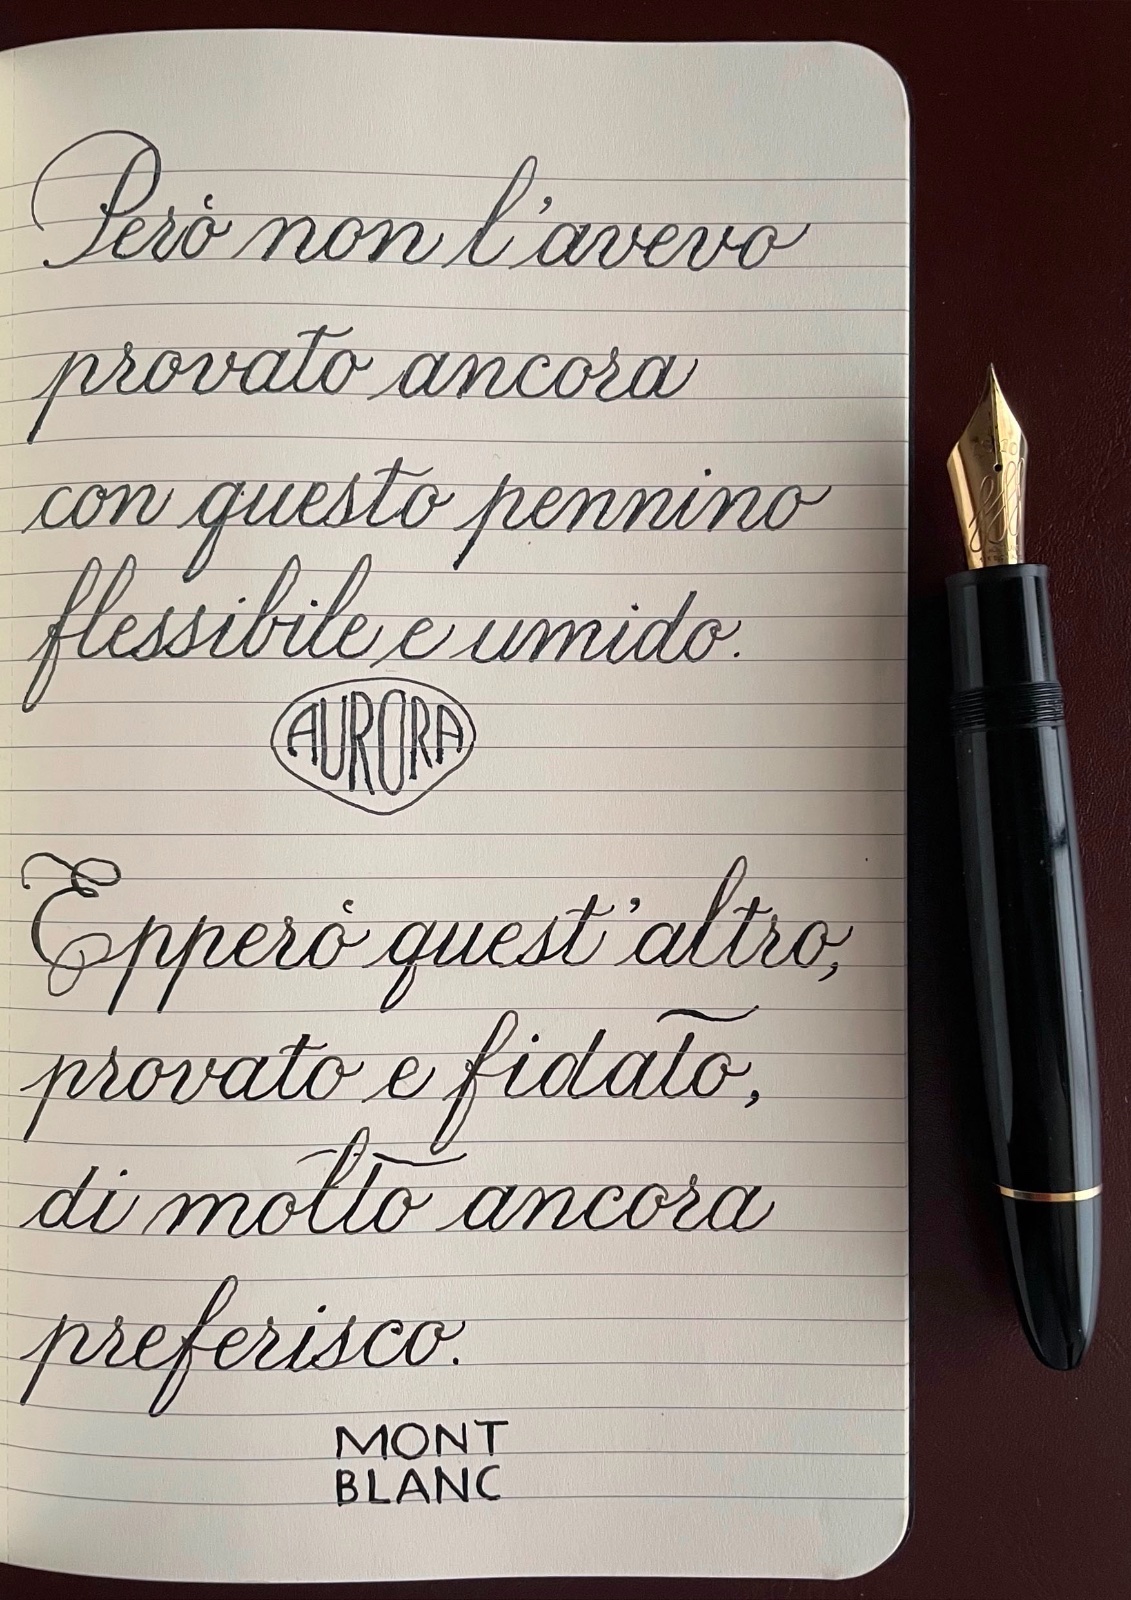 Però non l'avevo
provato ancora
con questo pennino
flessibile e umido.
AURORA
Epperò quest'altro,
provato e fidato,
di molto ancora
preferisco.
MONT
BLANC